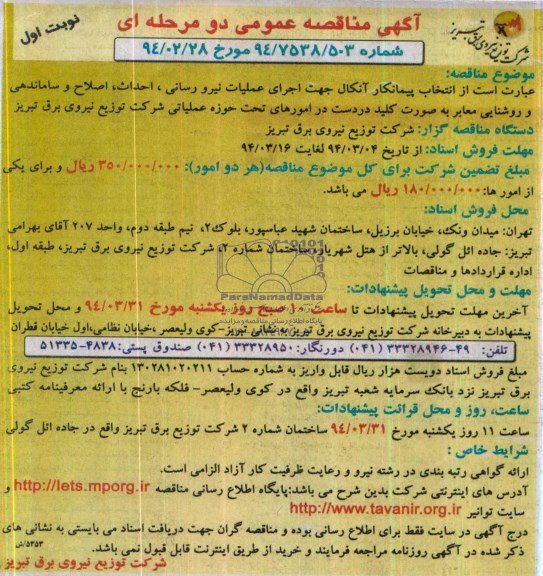 آگهی مناقصه عمومی دو مرحله ای
نوبت اول
شرکت توزیع نیروی برق تبریز
شماره ۹۴/۷۵۳۸/۵۰۳ مورخ ۹۴/۰۲/۲۸
موضوع مناقصه:
عبارت است از انتخاب پیمانکار آنکال جهت اجرای عملیات نیرو رسانی ، احداث، اصلاح و ساماندهی
و روشنایی معابر به صورت کلید دردست در امورهای تحت حوزه عملیاتی شرکت توزیع نیروی برق تبریز
دستگاه مناقصه گزار: شرکت توزیع نیروی برق تبریز
مهلت فروش اسناد: از تاریخ ۹۴/۰۳/۰۴ لغایت ۹۴/۰۳/۱۶
مبلغ تضمین شرکت برای کل موضوع مناقصه(هر دو امور): ۳۵۰/۰۰۰/۰۰۰ ریال و برای یکی
از امور ها: ۱۸۰/۰۰۰/۰۰۰ ریال می باشد.
محل فروش اسناد:
تهران: میدان ونک، خیابان برزیل، ساختمان شهید عباسپور، بلوک۲، نیم طبقه دوم، واحد ۲۰۷ آقای بهرامی
تبریز: جاده ائل گولی، بالاتر از هتل شهریار، ساختمان شماره ۲، شرکت توزیع نیروی برق تبریز، طبقه اول،
اداره قراردادها و مناقصات
ParsNamadData
پایگاه اطلاع رسانی مناقصه و مزایده
مهلت و محل تحویل پیشنهادات:
آخرین مهلت تحویل پیشنهادات تا ساعت ۱۰ صبح روز یکشنبه مورخ ۹۴/۰۳/۳۱ و محل تحویل
پیشنهادات به دبیرخانه شرکت توزیع نیروی برق تبریز به نشانی تبریز-کوی ولیعصر ،خیابان نظامی،اول خیابان قطران
تلفن: ۴۹-۳۳۳۲۸۹۴۶ (۰۴۱) دورنگار: ۳۳۳۲۸۹۵۰ (۰۴۱) صندوق پستی: ۴۸۳۸-۵۱۳۳۵
مبلغ فروش اسناد دویست هزار ریال قابل واریز به شماره حساب ۱۳۰۲۸۱۰۲۰۲۱۱ بنام شرکت توزیع نیروی
برق تبریز نزد بانک سرمایه شعبه تبریز واقع در کوی ولیعصر- فلکه بارنج با ارائه معرفینامه کتبی
ساعت، روز و محل قرائت پیشنهادات:
ساعت ۱۱ روز یکشنبه مورخ ۹۴/۰۳/۳۱ ساختمان شماره ۲ شرکت توزیع برق تبریز واقع در جاده ائل گولی
شرایط خاص :
ارائه گواهی رتبه بندی در رشته نیرو و رعایت ظرفیت کار آزاد الزامی است.
آدرس های اینترنتی شرکت بدین شرح می باشد:پایگاه اطلاع رسانی مناقصه http://iets.mporg.ir و
سایت توانیر http://www.tavanir.org.ir
درج آگهی در سایت فقط برای اطلاع رسانی بوده و مناقصه گران جهت دریافت اسناد می بایستی به نشانی های
ذکر شده در آگهی روزنامه مراجعه فرمایند و خرید از طریق اینترنت قابل قبول نمی باشد.
۵۳۵۳/ش
شرکت توزیع نیروی برق تبریز